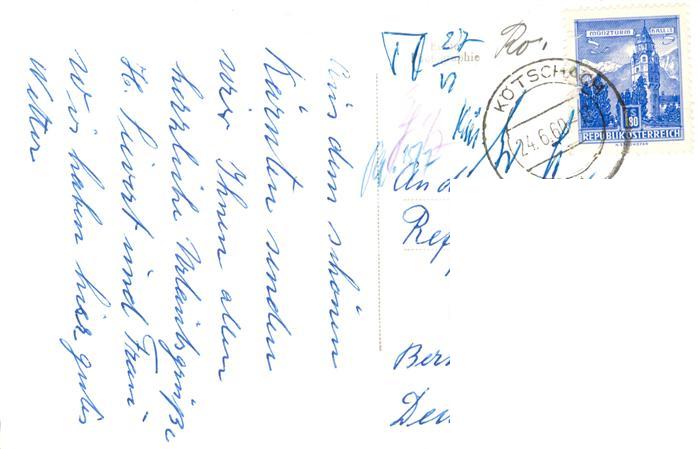 Aus dem schönen
Kärnten senden
wir Ihnen allen
herzliche Urlaubsgrüße
H. Siwert und Frau
Wir haben hier gutes
Wetter
27
VI
phie
Ro.
MÜNZTURM HALL i. T.
S 1.80
REPUBLIK ÖSTERREICH
KÖTSCHACH
24.6.60
An d
Ref
Ber
Deu